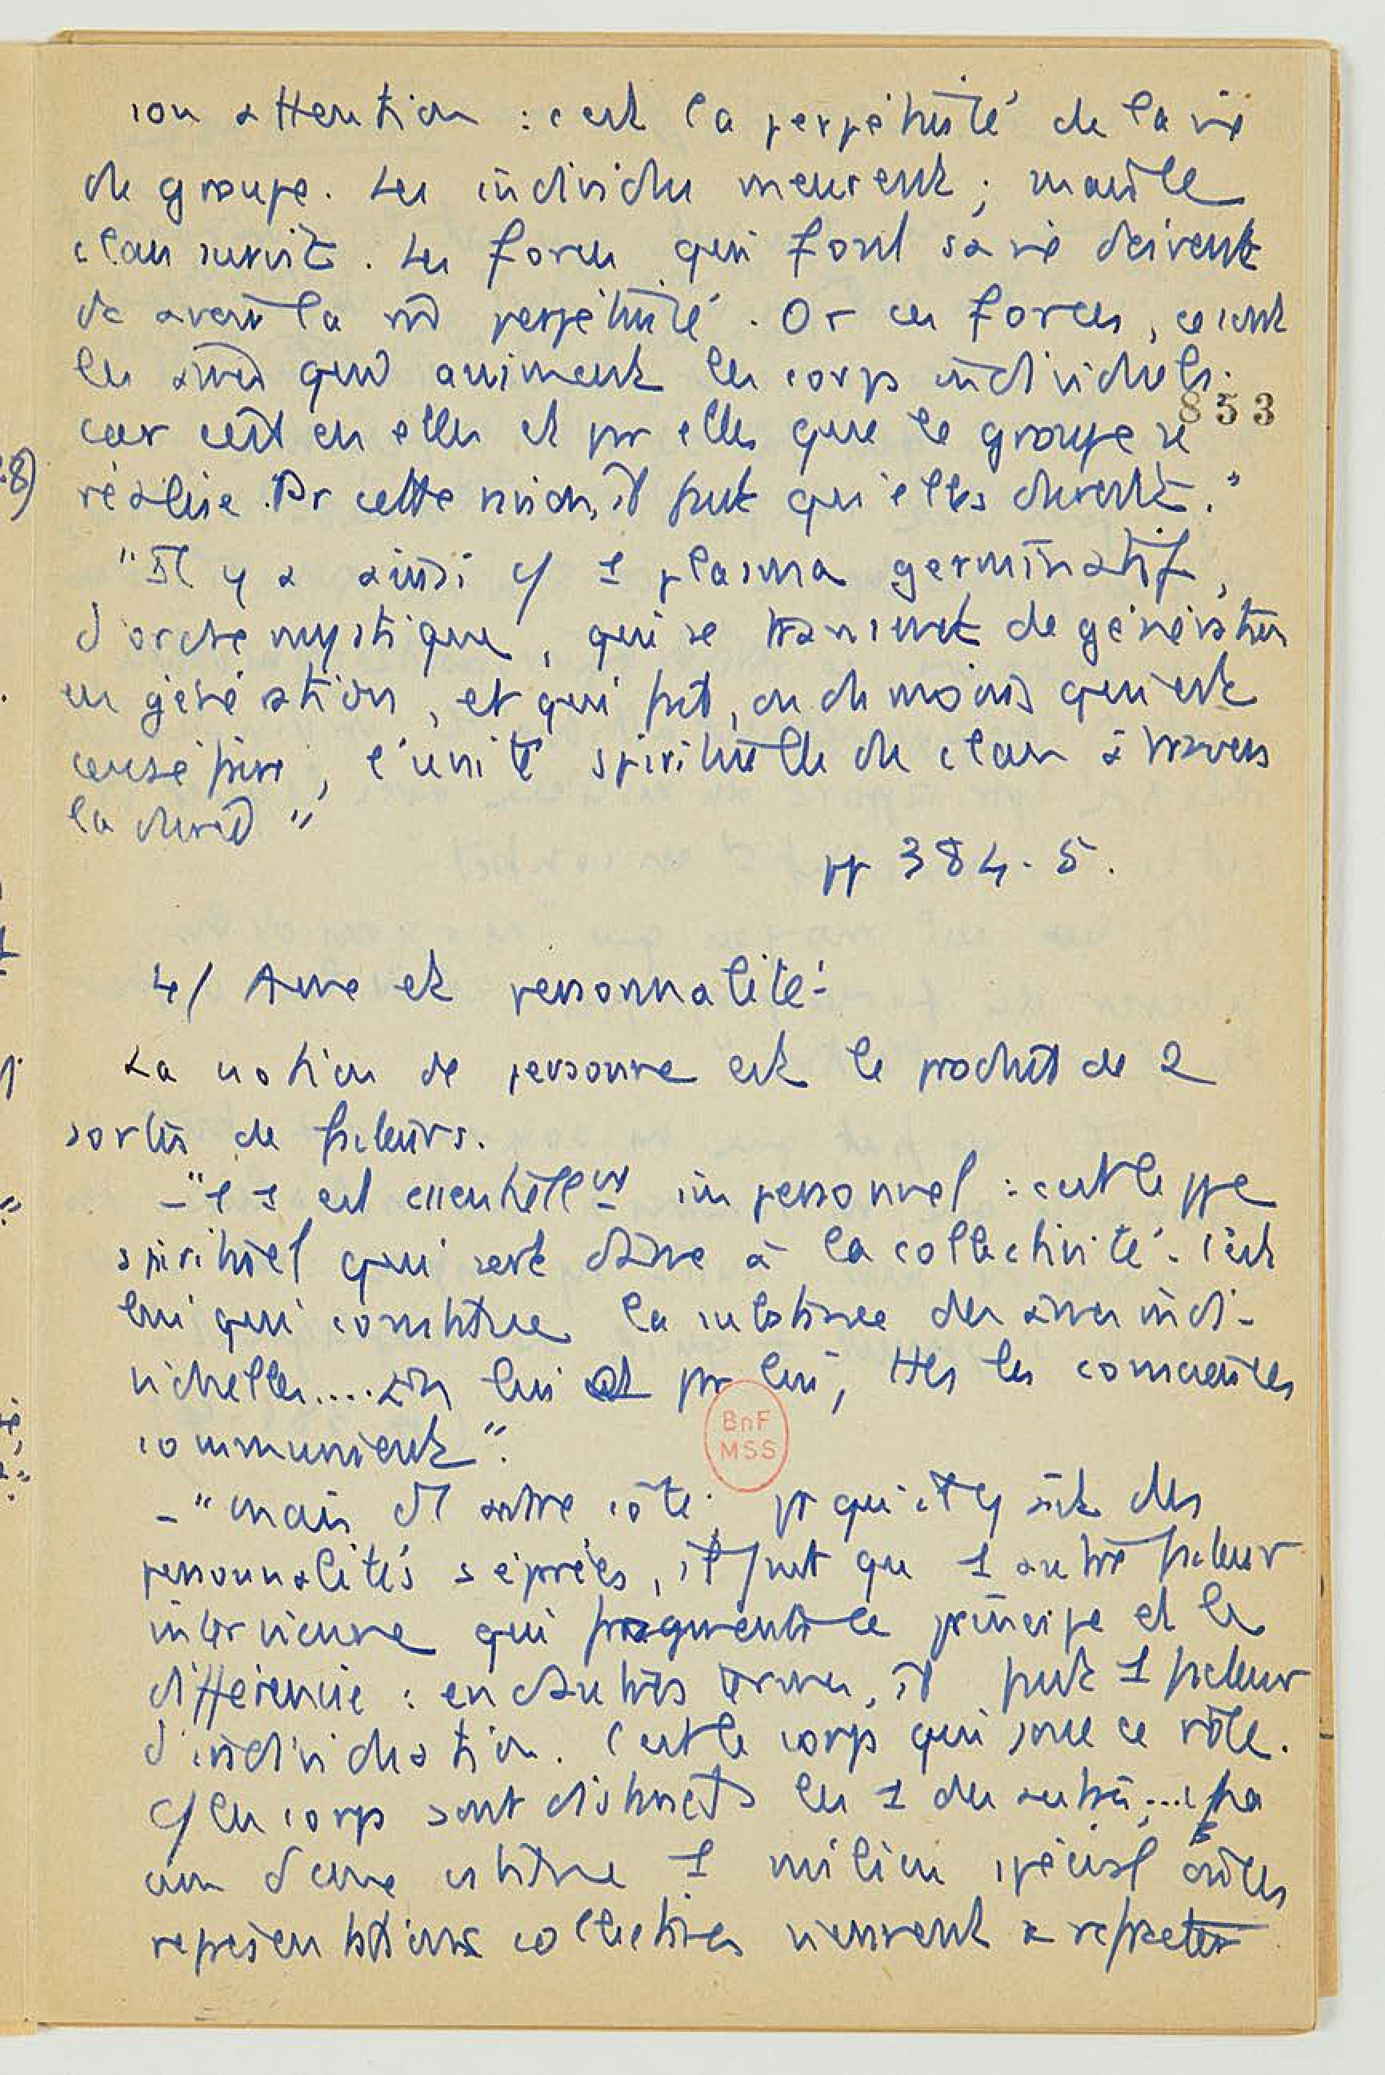 son attention : c'est la perpétuité de la vie
du groupe. Les individus meurent ; mais le
clan survit. Les forces qui font sa vie doivent
dc avoir la m̂ perpétuité. Or ces forces, ce sont
les âmes qui animent les corps individuels.
853
car c'est en elles et pr elles que le groupe se
8)
réalise. Pr cette raison, il faut qu'elles durent."
"Il y a ainsi c/ 1 plasma germinatif,
d'ordre mystique, qui se transmet de génération
en génération, et qui fait, ou du moins qui est
censé faire, l'unité spirituelle du clan à travers
la durée"
pp 384-5.
4/ Ame et personnalité.
La notion de personne est le produit de 2
sortes de facteurs.
- "l'1 est essentiellmt impersonnel : c'est le ppe
spirituel qui sert d'âme à la collectivité. C'est
lui qui constitue la substance des âmes indi-
viduelles.... en lui et pr lui, ttes les consciences
communient".
BnF
MSS
- "mais d'1 autre côté, pr qu'il y ait des
personnalités séparées, il faut qu 1 autre facteur
intervienne qui fragmente ce principe et le
différencie : en d'autres termes, il faut 1 facteur
d'individuation. C'est le corps qui joue ce rôle.
c/ les corps sont distincts les 1 des autres,...
un d'eux constitue 1 milieu spécial où les
représentations collectives viennent se réfracter